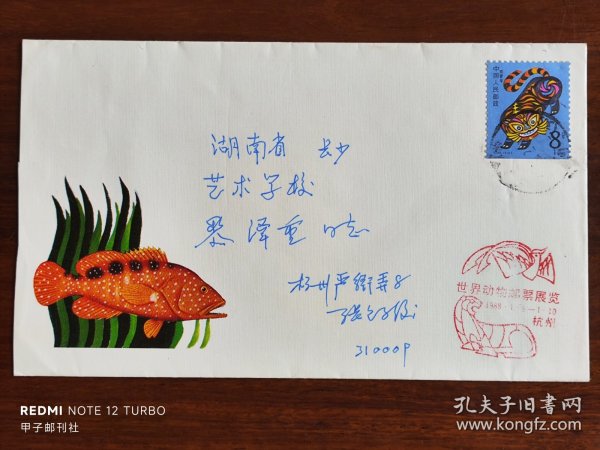 中国人民邮政
8
湖南省 长沙
艺术学校
黎泽重 同志
世界动物邮票展览
杭州
杭州严衙弄8
310009
REDMI NOTE 12 TURBO
甲子邮刊社
孔夫子旧书网
www.kongfz.com